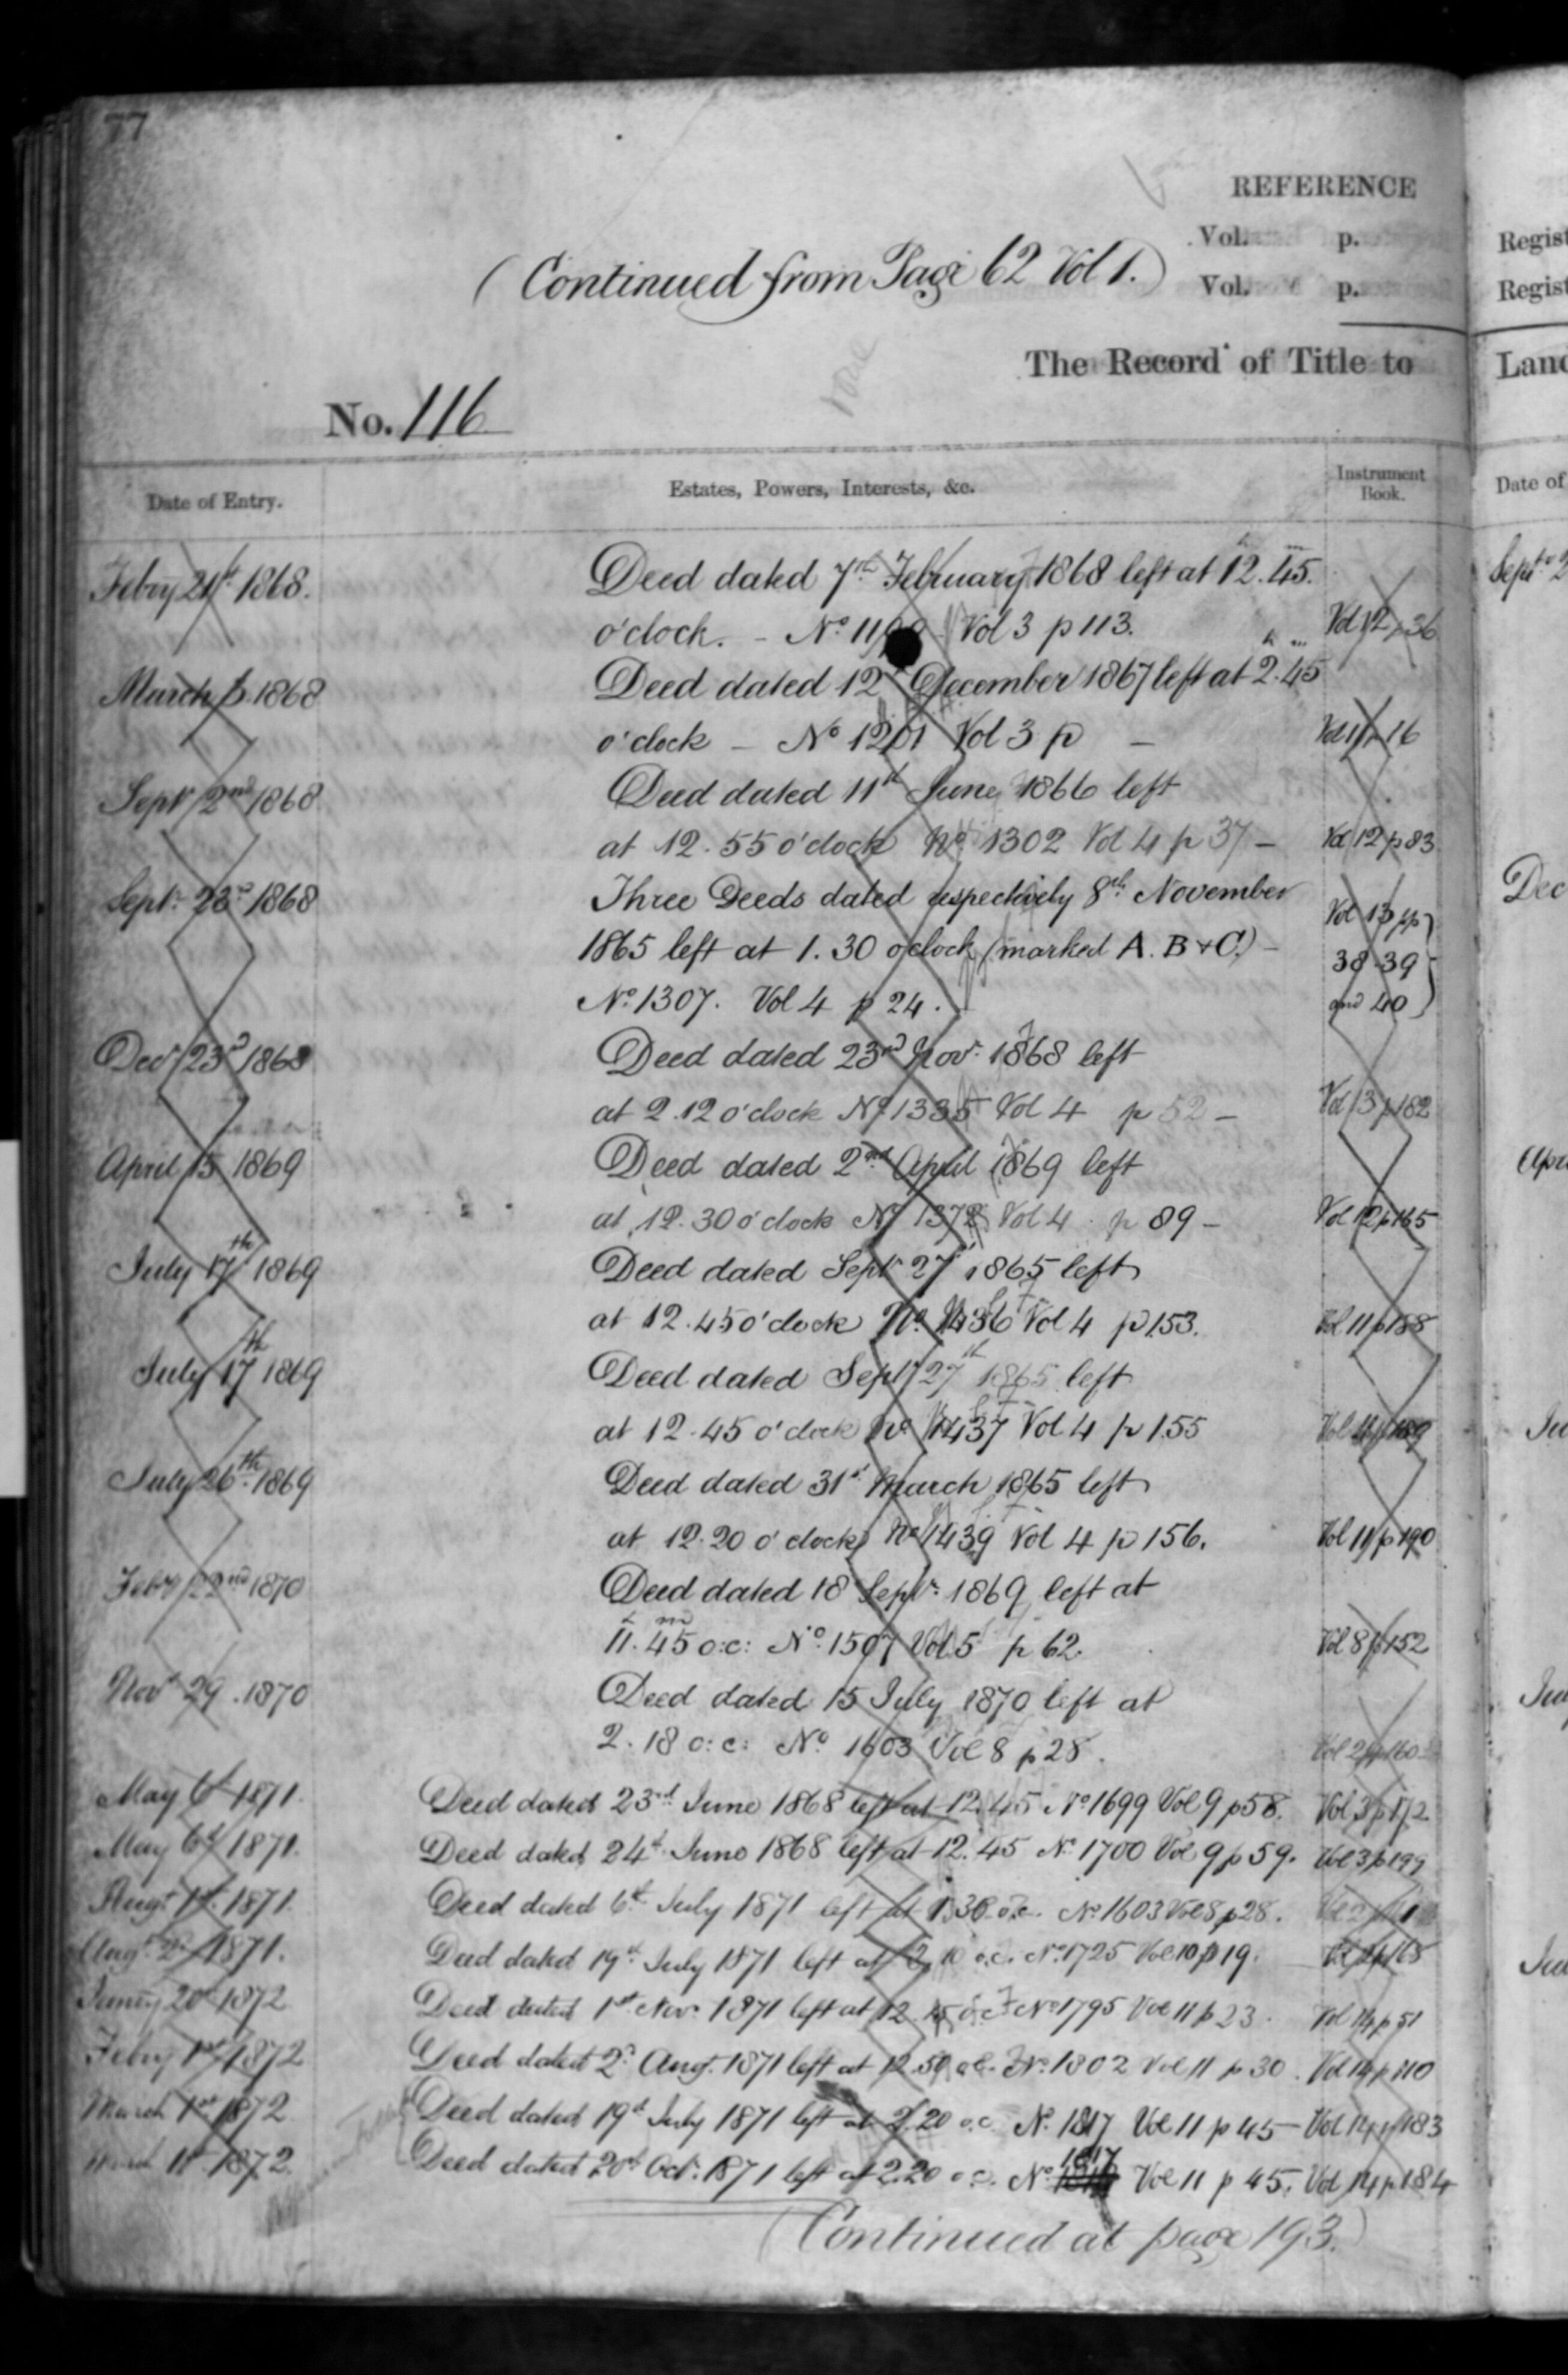 77
REFERENCE
Vol. p.
(Continued from Page 62 Vol 1.)
Vol. p.
The Record of Title to
No. 116
Date of Entry. Estates, Powers, Interests, &c. Instrument Book.
Febry 21st 1868. Deed dated 7th February 1868 left at 12.45.
o'clock. - No Vol 3 p 113. Vol 12 p 36
March 1868 Deed dated 12 December 1867 left at 2.45
o'clock - No 1201 Vol 3 p - Vol 11 p 16
Sept 2nd 1868 Deed dated 11th June 1866 left
at 12.55 o'clock No 1302 Vol 4 p 37 - Vol 12 p 83
Sept. 23d 1868 Three Deeds dated respectively 8th November
1865 left at 1.30 o'clock (marked A. B & C.) - Vol 13 pp
38-39
No 1307. Vol 4 p 24. and 40
Decr 23d 1868 Deed dated 23rd Novr. 1868 left
at 2.12 o'clock No 1335 Vol 4 p 52 - Vol 13 p 182
April 15 1869 Deed dated 2nd April 1869 left
at 12.30 o'clock No 1372 Vol 4 p 89 - Vol 12 p 165
July 17th 1869 Deed dated Sept 27 1865 left
at 12.45 o'clock No. 1436 Vol 4 p 153. Vol 11 p 188
July 17th 1869 Deed dated Sept 27th 1865 left
at 12.45 o'clock No 1437 Vol 4 p 155 Vol 11 p 189
July 26th 1869 Deed dated 31st March 1865 left
at 12.20 o'clock No 1439 Vol 4 p 156. Vol 11 p 190
Feby 22nd 1870 Deed dated 18 Septr. 1869 left at
11.45 o:c: No. 1507 Vol 5 p 62. Vol 8 p 152
Novr 29. 1870 Deed dated 15 July 1870 left at
2.18 o:c: No 1603 Vol 8 p 28. Vol 2 p 160
May 6th 1871. Deed dated 23rd June 1868 left at 12.45 No 1699 Vol 9 p 58. Vol 3 p 172
May 6th 1871. Deed dated 24th June 1868 left at 12.45 No 1700 Vol 9 p 59. Vol 3 p 199
Augt. 1st. 1871. Deed dated 6th July 1871 left at 1.30 o.c. No 1603 Vol 8 p 28.
Augt. 2d 1871. Deed dated 19th July 1871 left at 2.10 o.c. No. 1725 Vol 10 p 19. Vol 2 p 168
20th 1872 Deed dated 1st Novr 1871 left at 12.15 o.c. No 1795 Vol 11 p 23. Vol 14 p 51
Febry 1st 1872 Deed dated 2d Augt. 1871 left at 12.50 o.c. No. 1802 Vol 11 p 30. Vol 14 p 110
March 1st 1872 Deed dated 19th July 1871 left at 2.20 o.c. No. 1817 Vol 11 p 45 - Vol 14 p 183
March 1st 1872. Deed dated 20th Oct. 1871 left at 2.20 o.c. No 1817 Vol 11 p 45. Vol 14 p 184
(Continued at page 193.)
Regist
Regist
Land
Date of
Sept 2
Dec